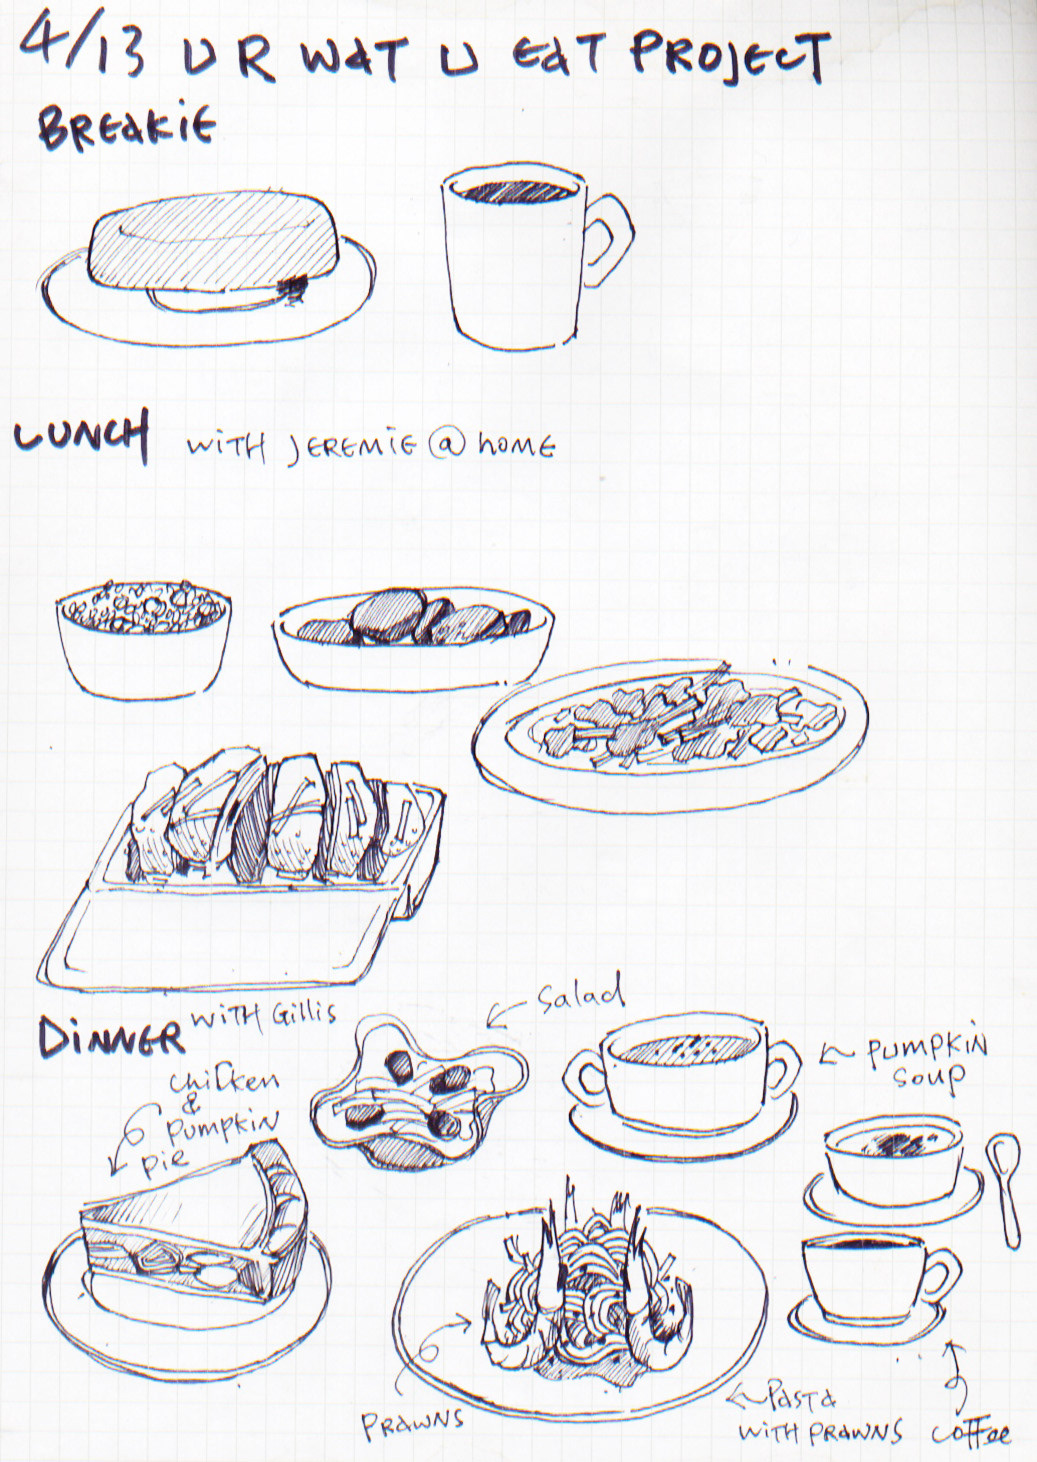 4/13 U R WAT U EAT PROJECT
BREAKIE
LUNCH WITH JEREMIE @ HOME
DINNER WITH Gillis
Salad
PUMPKIN
SOUP
chicken
&
pumpkin
pie
PRAWNS
PASTA
WITH PRAWNS
coffee